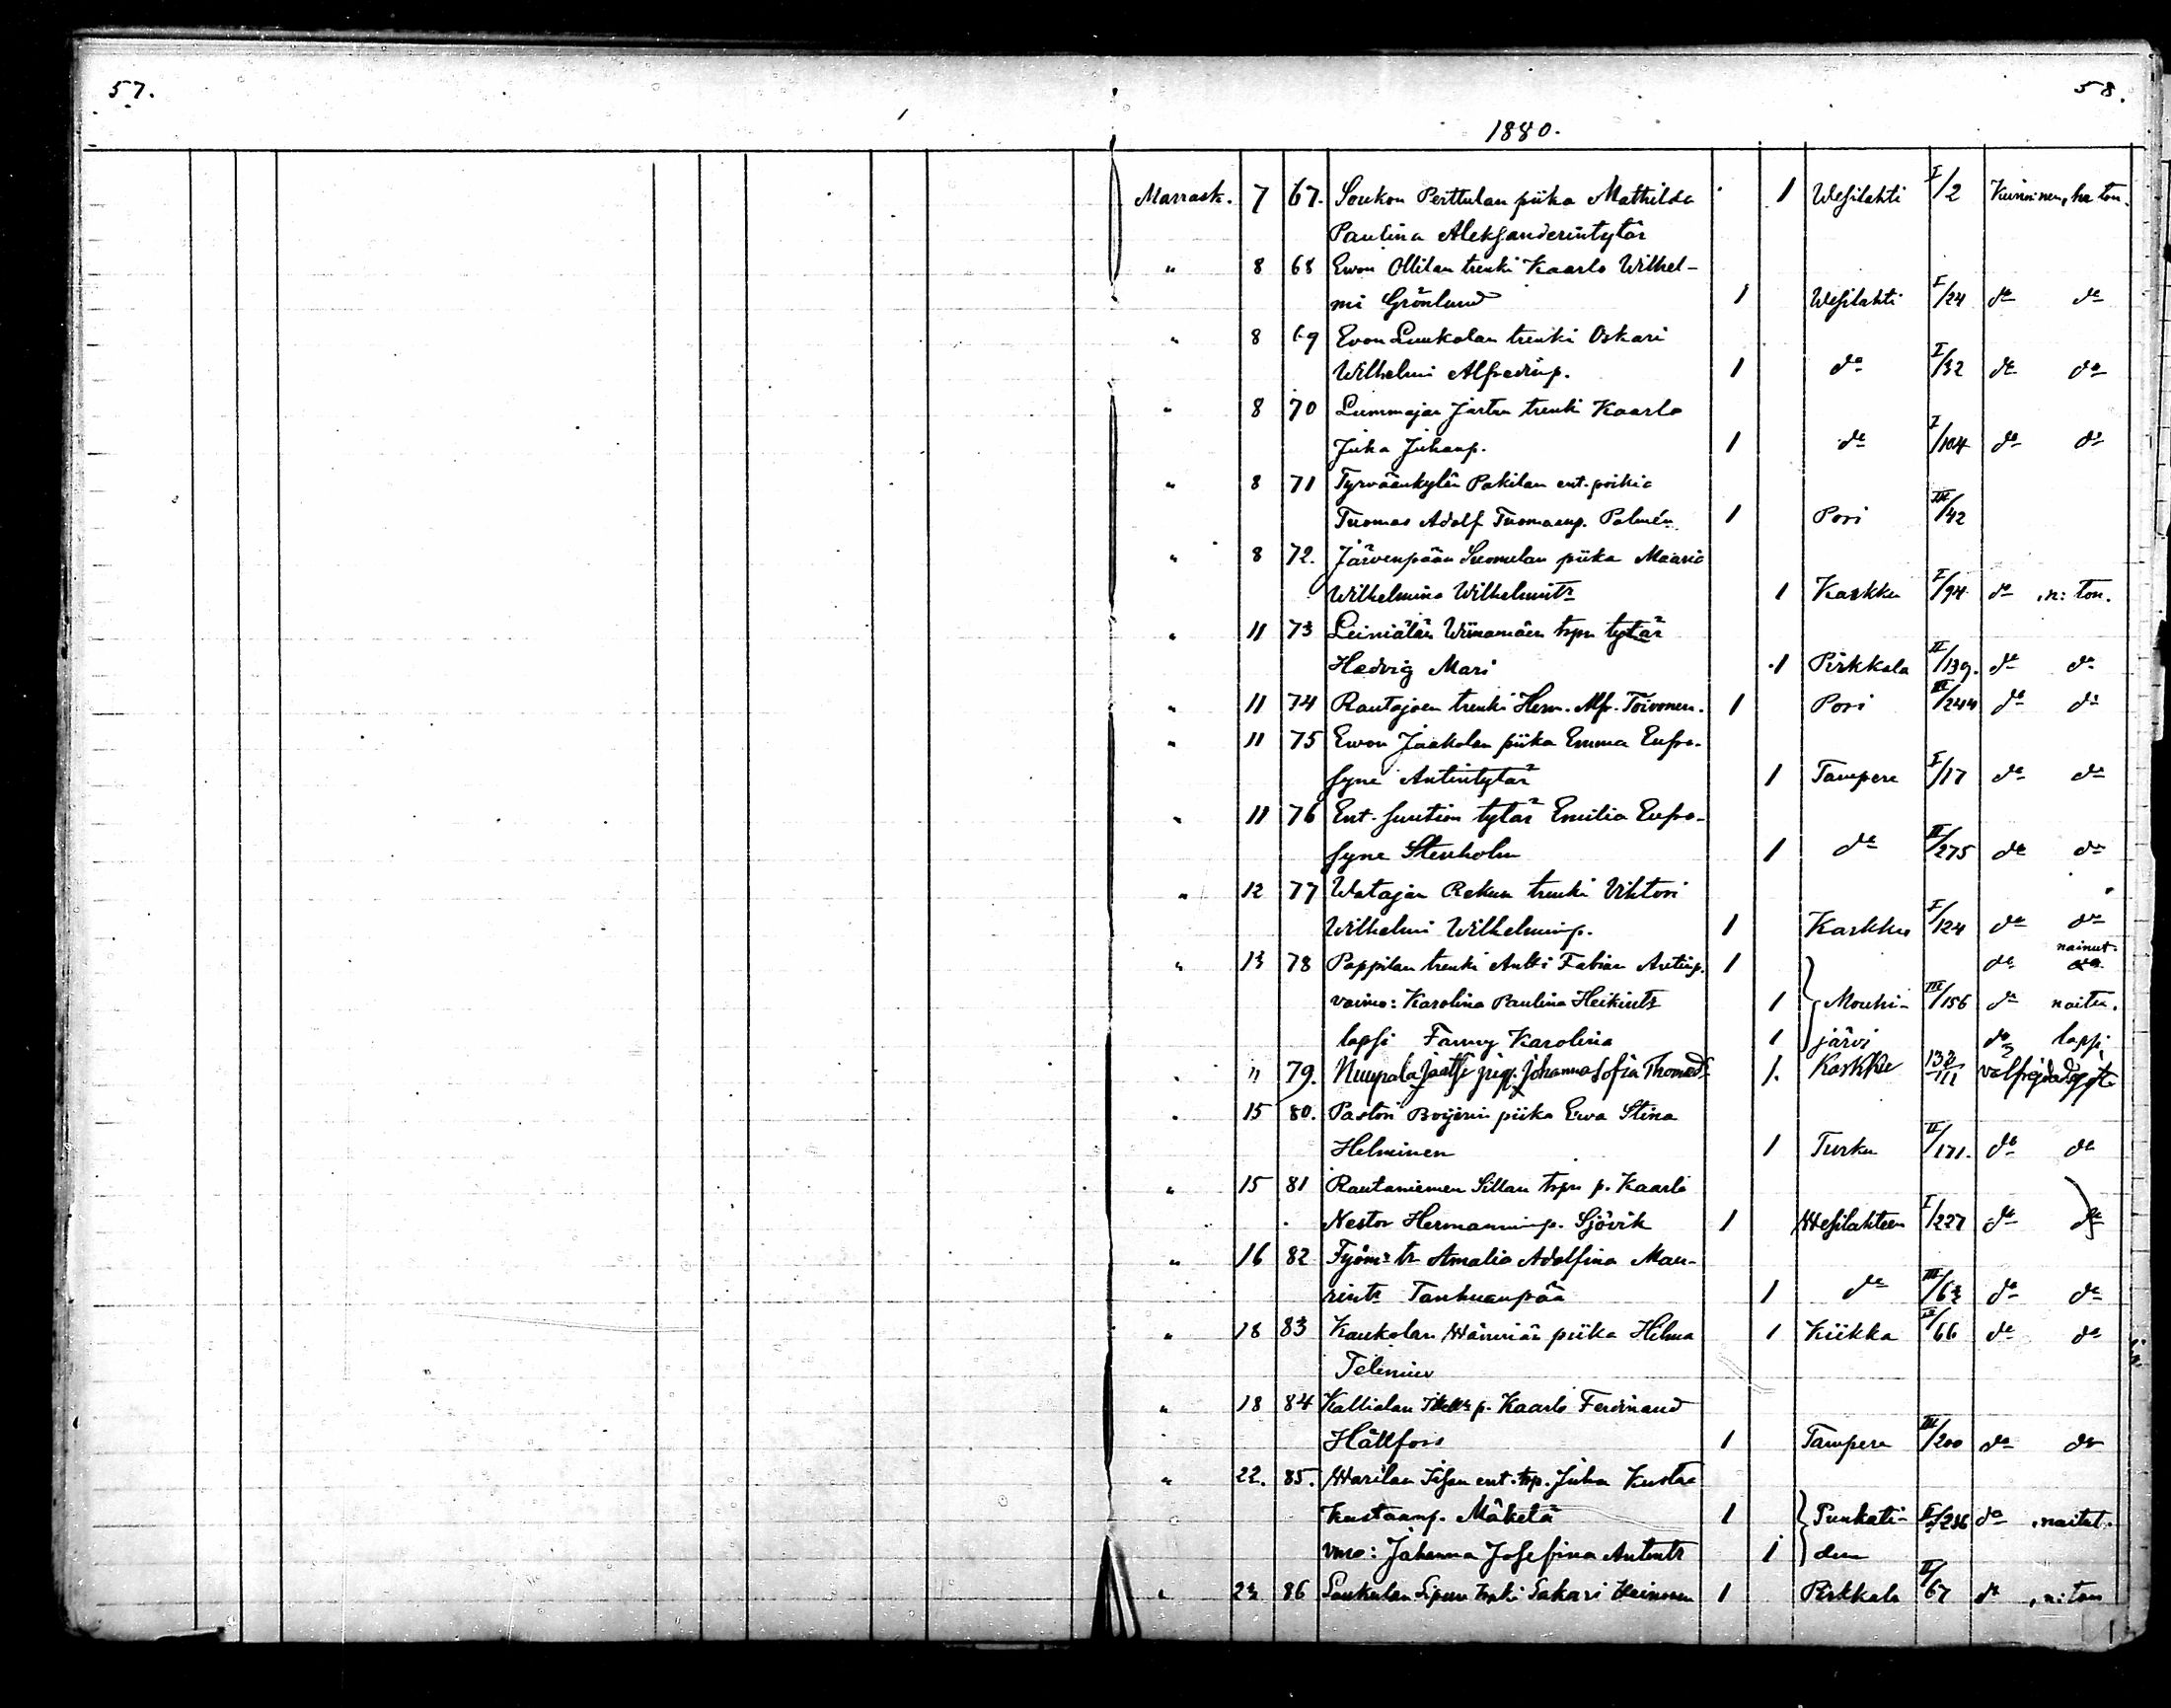 57.
58.
1880.
Marrask. 7 67. Soukon Perttulan piika Mathilda 1 Wesilahti I/2 Kunnian, ha ton.
Paulina Aleksanderintytär
" 8 68 Ewon Ollilan trenki Kaarlo Wilhel-
mi Grönlund 1 Wesilahti I/24 do do
" 8 69 Evon Luukalan trenki Oskari
Wilhelmi Alfredinp. 1 do I/32 do do
" 8 70 Lummajan trenki Kaarlo
Juha Juhanp. 1 do I/104 do do
" 8 71 Tyrväänkylän Pakilan ent. poika
Tuomas Adolf Tuomaanp. Palmén 1 Pori III/42
" 8 72. Järvenpään Suomelan piika Maaria
Wilhelmina Wilhelmintr 1 Karkku I/94 do n: ton.
" 11 73 Leiniälän Wiinamäen tytär
Hedvig Mari 1 Pirkkala II/139. do do
" 11 74 Rautajoen trenki Herm. Alfr. Toivonen. 1 Pori III/244 do do
" 11 75 Ewon Jaakolan piika Emma Eufro-
syne Antintytär 1 Tampere I/17 do do
" 11 76 Ent. suntion tytär Emilia Eufro-
syne Stenholm 1 do II/275 do do
" 12 77 Watajan Rekun trenki Vihtori
Wilhelmi Wilhelminp. 1 Karkku I/124 do do
" 13 78 Pappilan trenki Antti Fabian Antinp. 1 do nainut.
vaimo: Karolina Paulina Heikintr 1 Mouhi- III/156 do naitu.
lapsi Fanny Karolina 1 järvi do lapsi
" " 79. Nuupala Jaatsi pig. Johanna Sofia Thomasd. 1. Karkku 132/III
" 15 80. Pastori piika Ewa Stina
Helminen 1 Turku II/171. do do
" 15 81 Rautaniemen Sillan p. Kaarlo
Nestor Hermanninp. Sjövik 1 Wesilahteen I/227 do do
" 16 82 Työm: tr Amalia Adolfina Mau-
rintr Tanhuanpää 1 do III/63 do do
" 18 83 Kaukolan piika Hilma 1 Kiikka 66 do do
Telenius
" 18 84 Kallialan p. Kaarlo Ferdinand
Hällfors 1 Tampere III/200 do do
" 22. 85. Warilan ent. Juha Kustaa
Kustaanp. Mäkelä 1 Punkalai- II/286 do naitut.
vmo: Johanna Josefina Antintr 1
" 23 86 Soukulan Sakari Heinonen 1 Pirkkala II/67 do n: ton